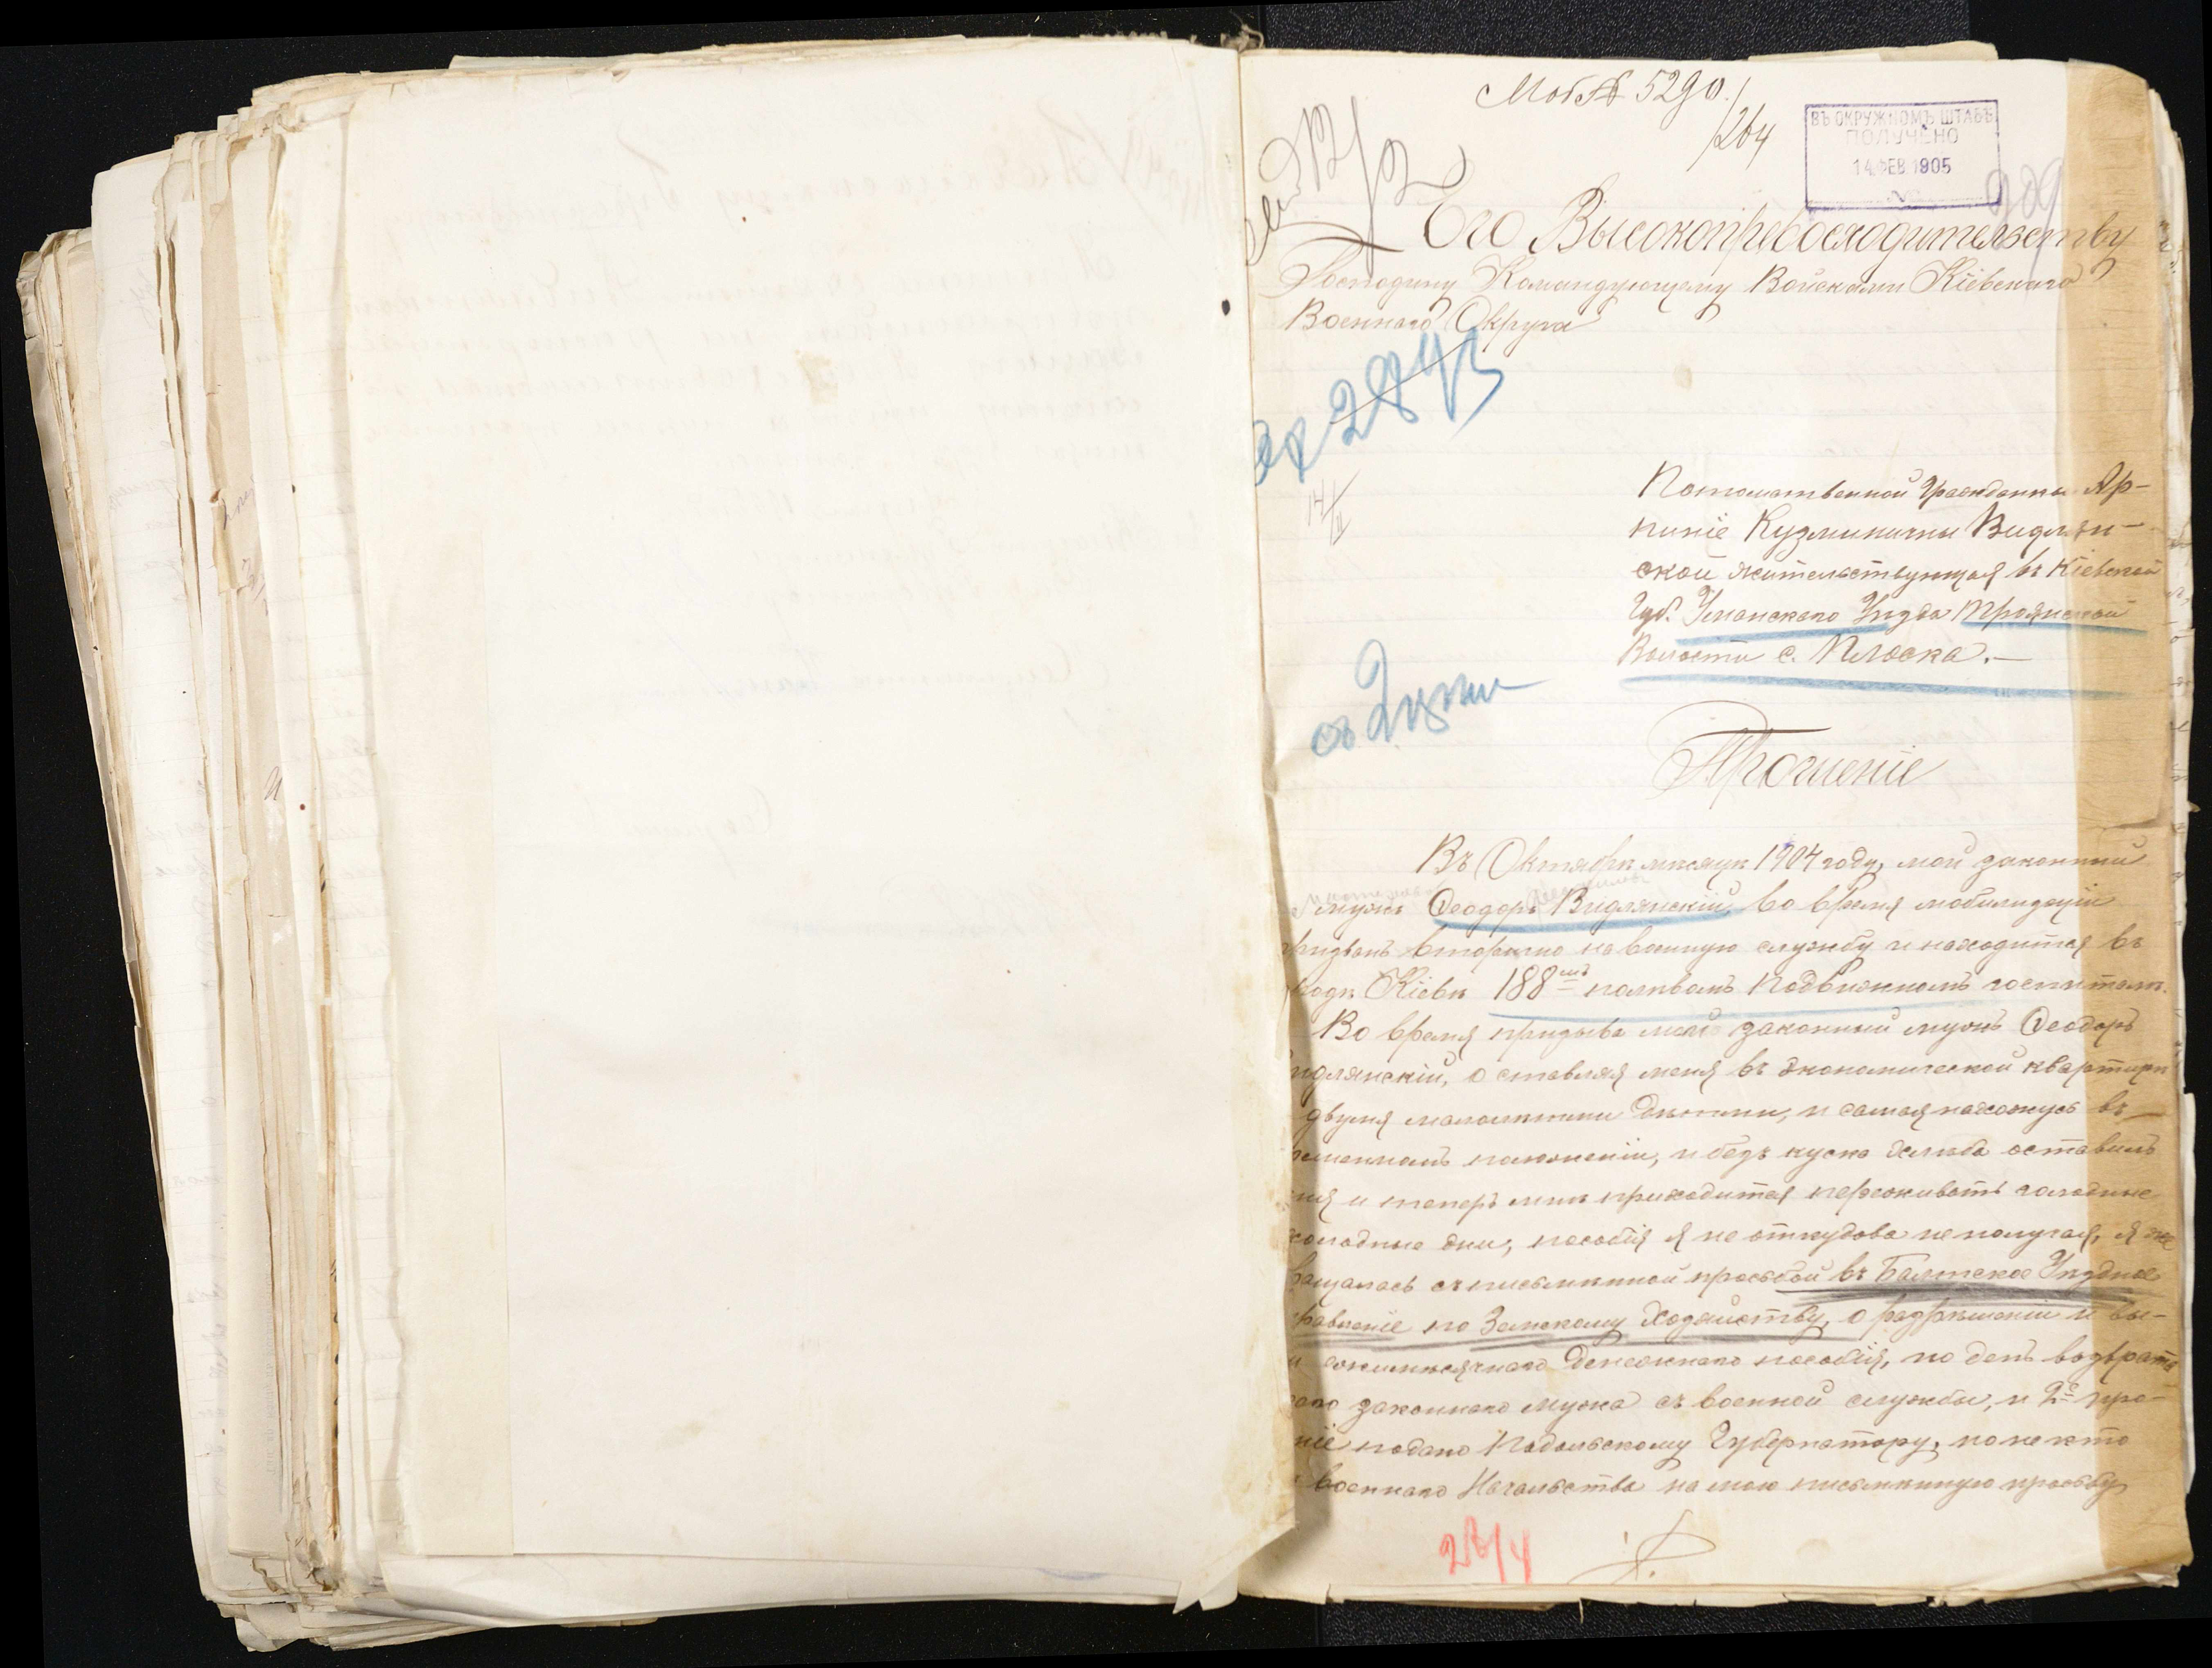 Моб № 5290./
264
ВЪ ОКРУЖНОМЪ ШТАБѢ
ПОЛУЧЕНО
14 ФЕВ 1905
№
929
Его Высокопревосходительству
Господину Командующему Войсками Кіевскаго
Военнаго Округа
2843
14/II
Потомственной Гражданки Яр-
пиніе Кузминичны Видлян-
ской жительствующая въ Кіевской
Губ. Уманскаго Уѣзда Троянской
Волости с. Плоска.—
Прошеніе
Въ Октябрѣ мѣсяцѣ 1904 году, мой законный
мужъ Ѳеодоръ Видлянскій, во время мобилизаціи
призванъ вторично на военную службу и находится въ
родѣ Кіевѣ 188мъ полевомъ подвижномъ госпиталѣ.
Во время призыва мой законный мужъ Ѳеодоръ
идлянскій, оставляя меня въ экономической квартирѣ
двумя малолѣтними дѣтьми, и самая нахожусь въ
менномъ положеніи, и безъ куска хлѣба оставилъ
ня и теперъ мнѣ приходится переживать голодные
холодные дни, пособія я не откудова не получая, я же
ращалась съ письмѣнной просьбой въ Балтское Уѣздное
равленіе по Земскому Хозяйству, о разрѣшеніи и вы-
и ежимѣсячнаго денежнаго пособія, по день возврата
его законнаго мужа съ военной службы, и 2е про-
ніе подано Подольскому Губернатору, но некто
военнаго Начальства на мою письмѣнную просьбу
28/4